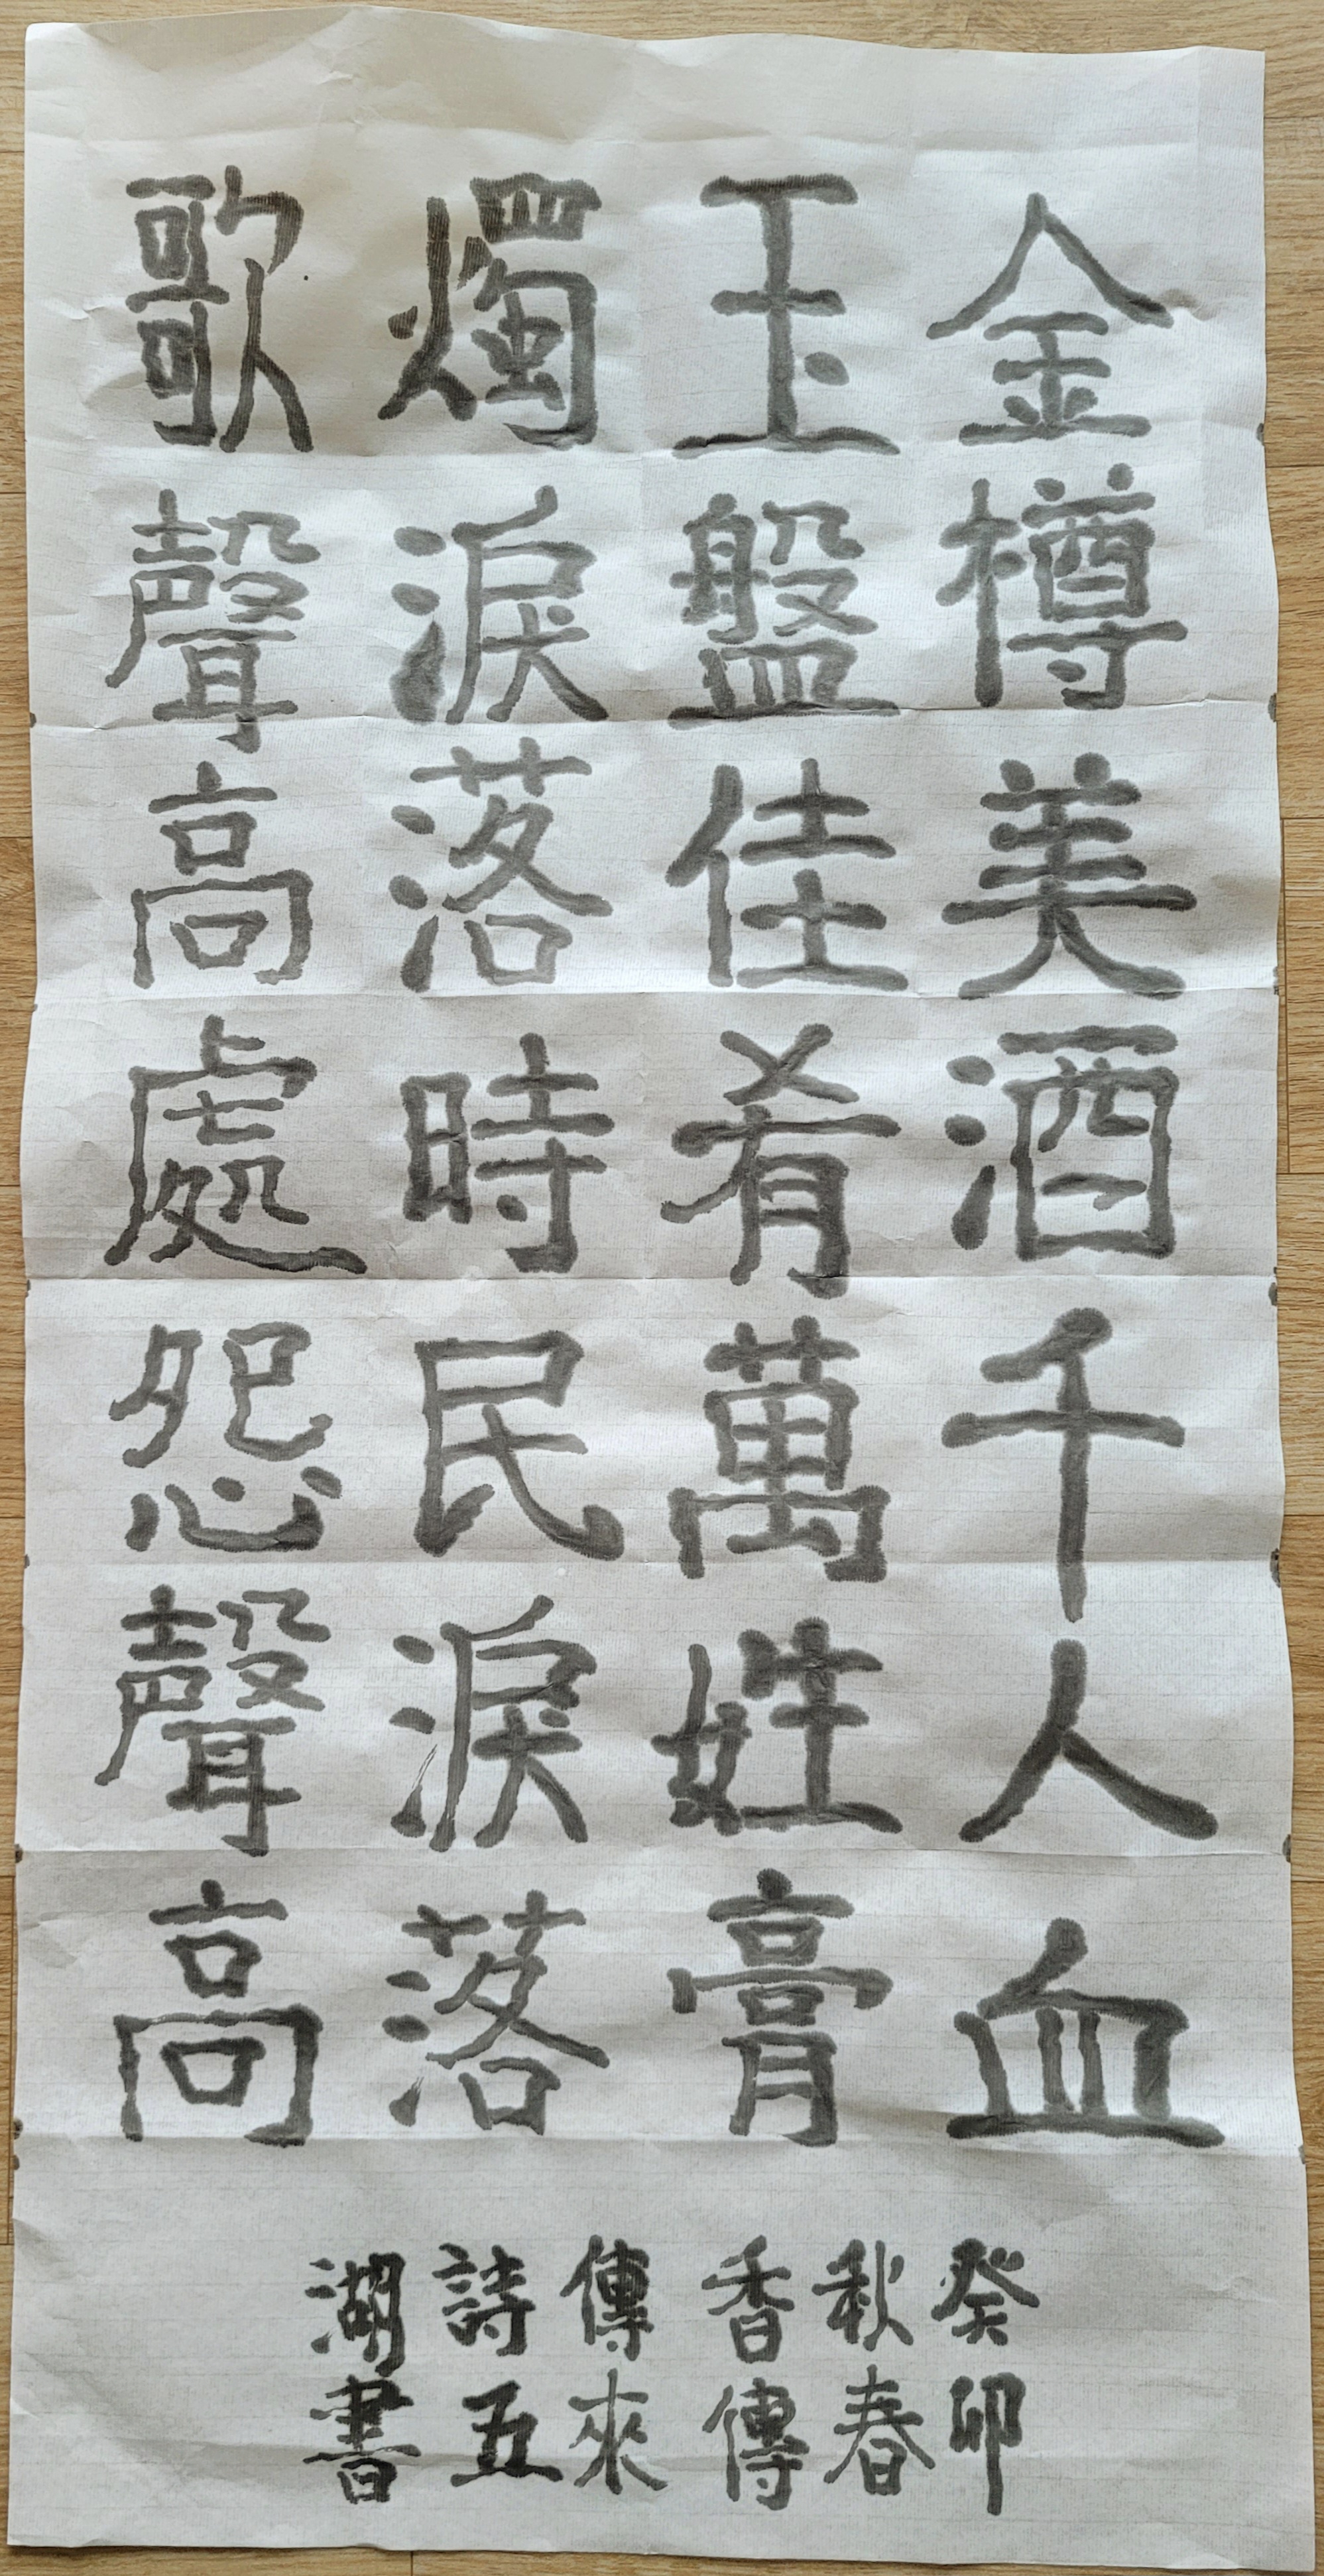 金樽美酒千人血
玉盤佳肴萬姓膏
燭淚落時民淚落
歌聲高處怨聲高
癸卯
秋春
香傳
傳來
詩五
湖書